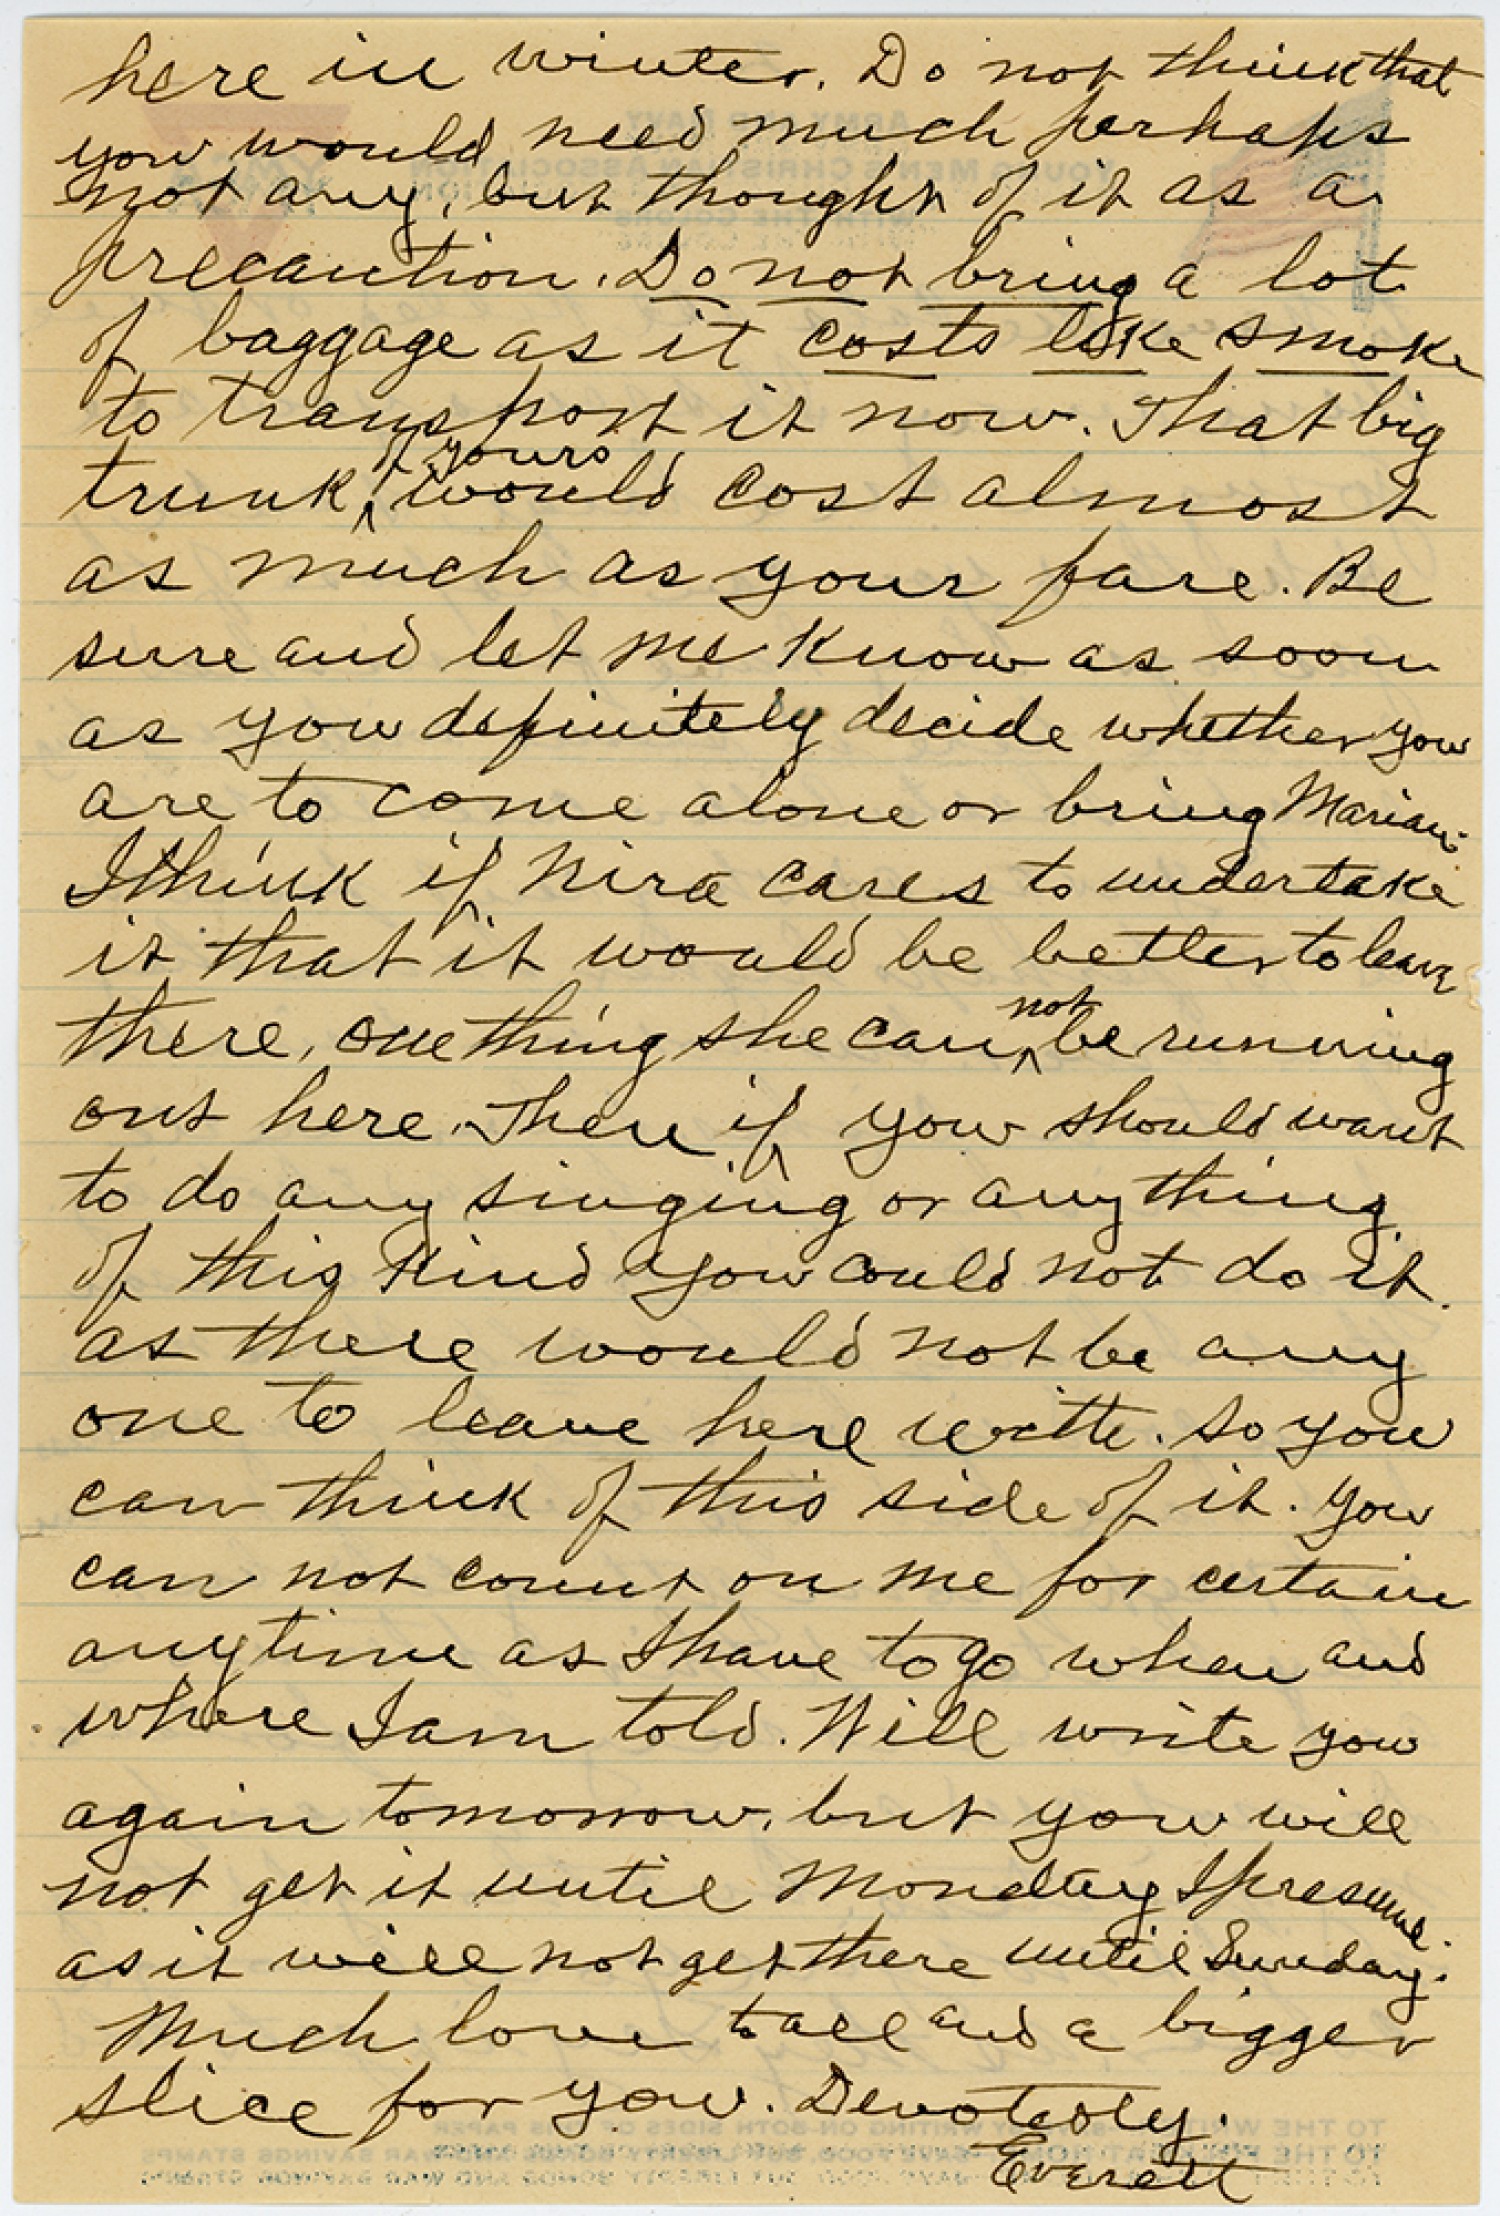 here in winter. Do not think that
you would need much perhaps
not any, but thought of it as a
precaution. Do not bring a lot
of baggage as it costs like smoke
to transport it now. That big
trunk of yours would cost almost
as much as your fare. Be
sure and let me know as soon
as you definitely decide whether you
are to come alone or bring Marian.
I think if Nira cares to undertake
it that it would be better to leave
there, one thing she can not be running
out here. Then if you should want
to do any singing or anything
of this kind you could not do it
as there would not be any
one to leave here with. So you
can think of this side of it. You
can not count on me for certain
anytime as I have to go when and
where I am told. Will write you
again tomorrow, but you will
not get it until Monday I presume.
as it will not get there until Sunday.
Much love to all and a bigger
slice for you. Devotedly.
Everett